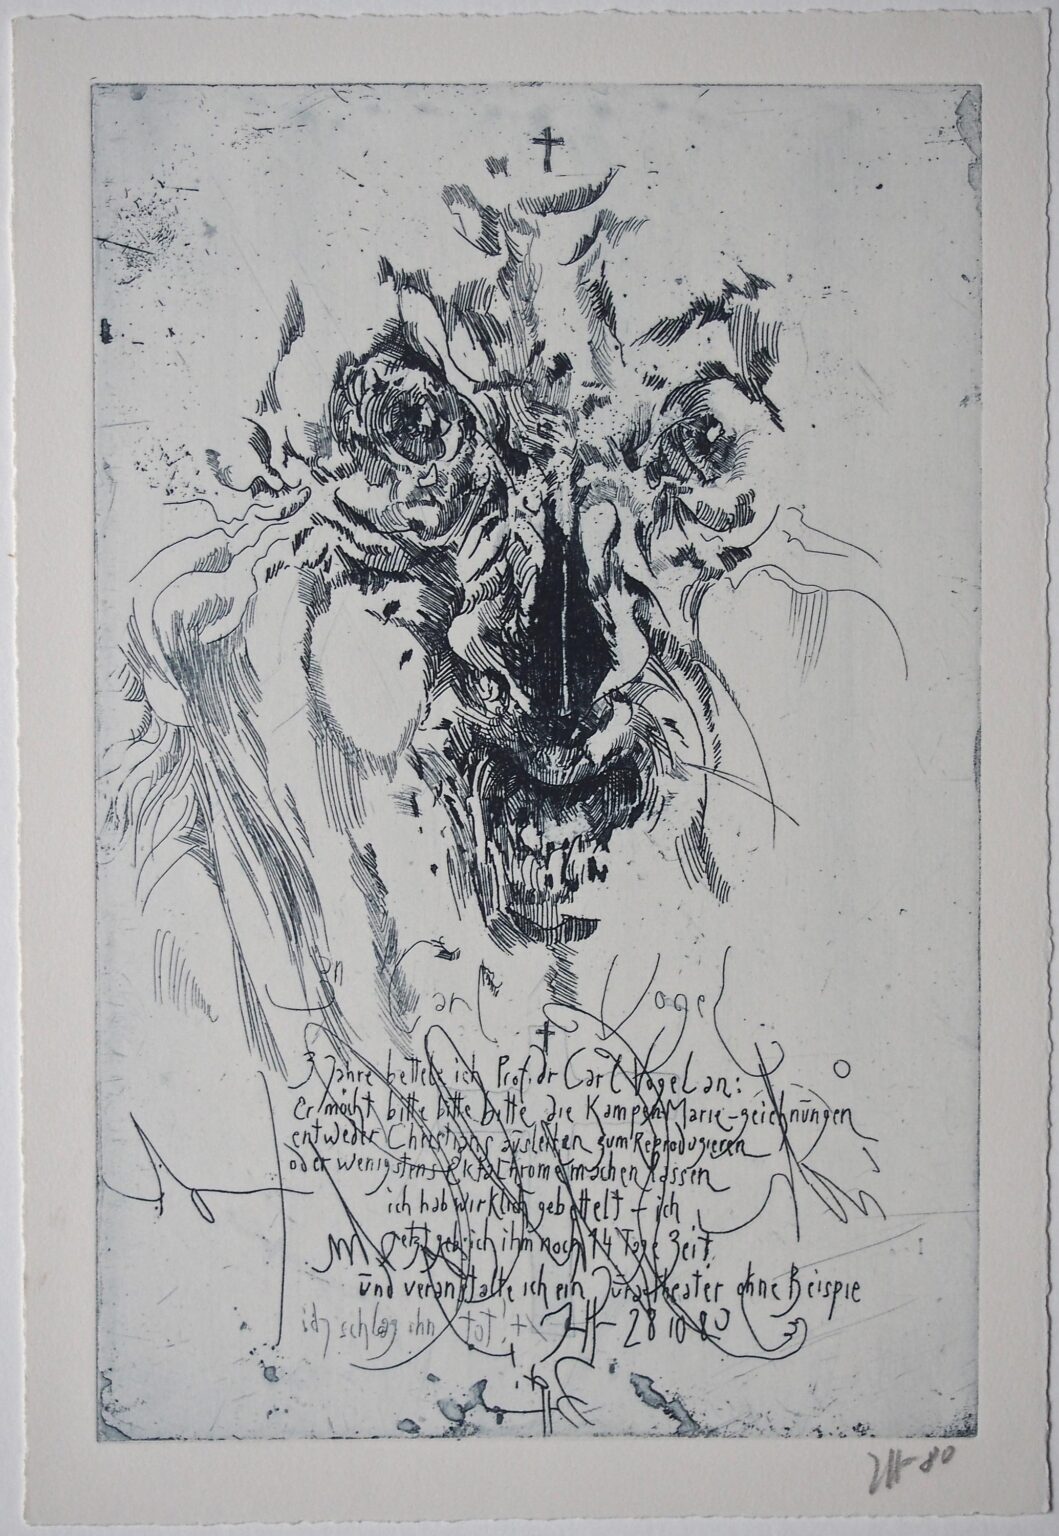 An
Carl Vogel
3 Jahre bettele ich Prof. dr Carl Vogel an:
Er möcht bitte bitte bitte die Kampen-Marie-zeichnüngen
entweder Christians aüsleihen zum Reprodugieren
oder wenigstens Ektachrome machen lassen
ich hab wirklich gebettelt - ich
jetzt geb ich ihm noch 14 Tage Zeit
ünd veranstalte ich ein theater ohne Beispie
ich schlag ihn tot 28 10 80
80